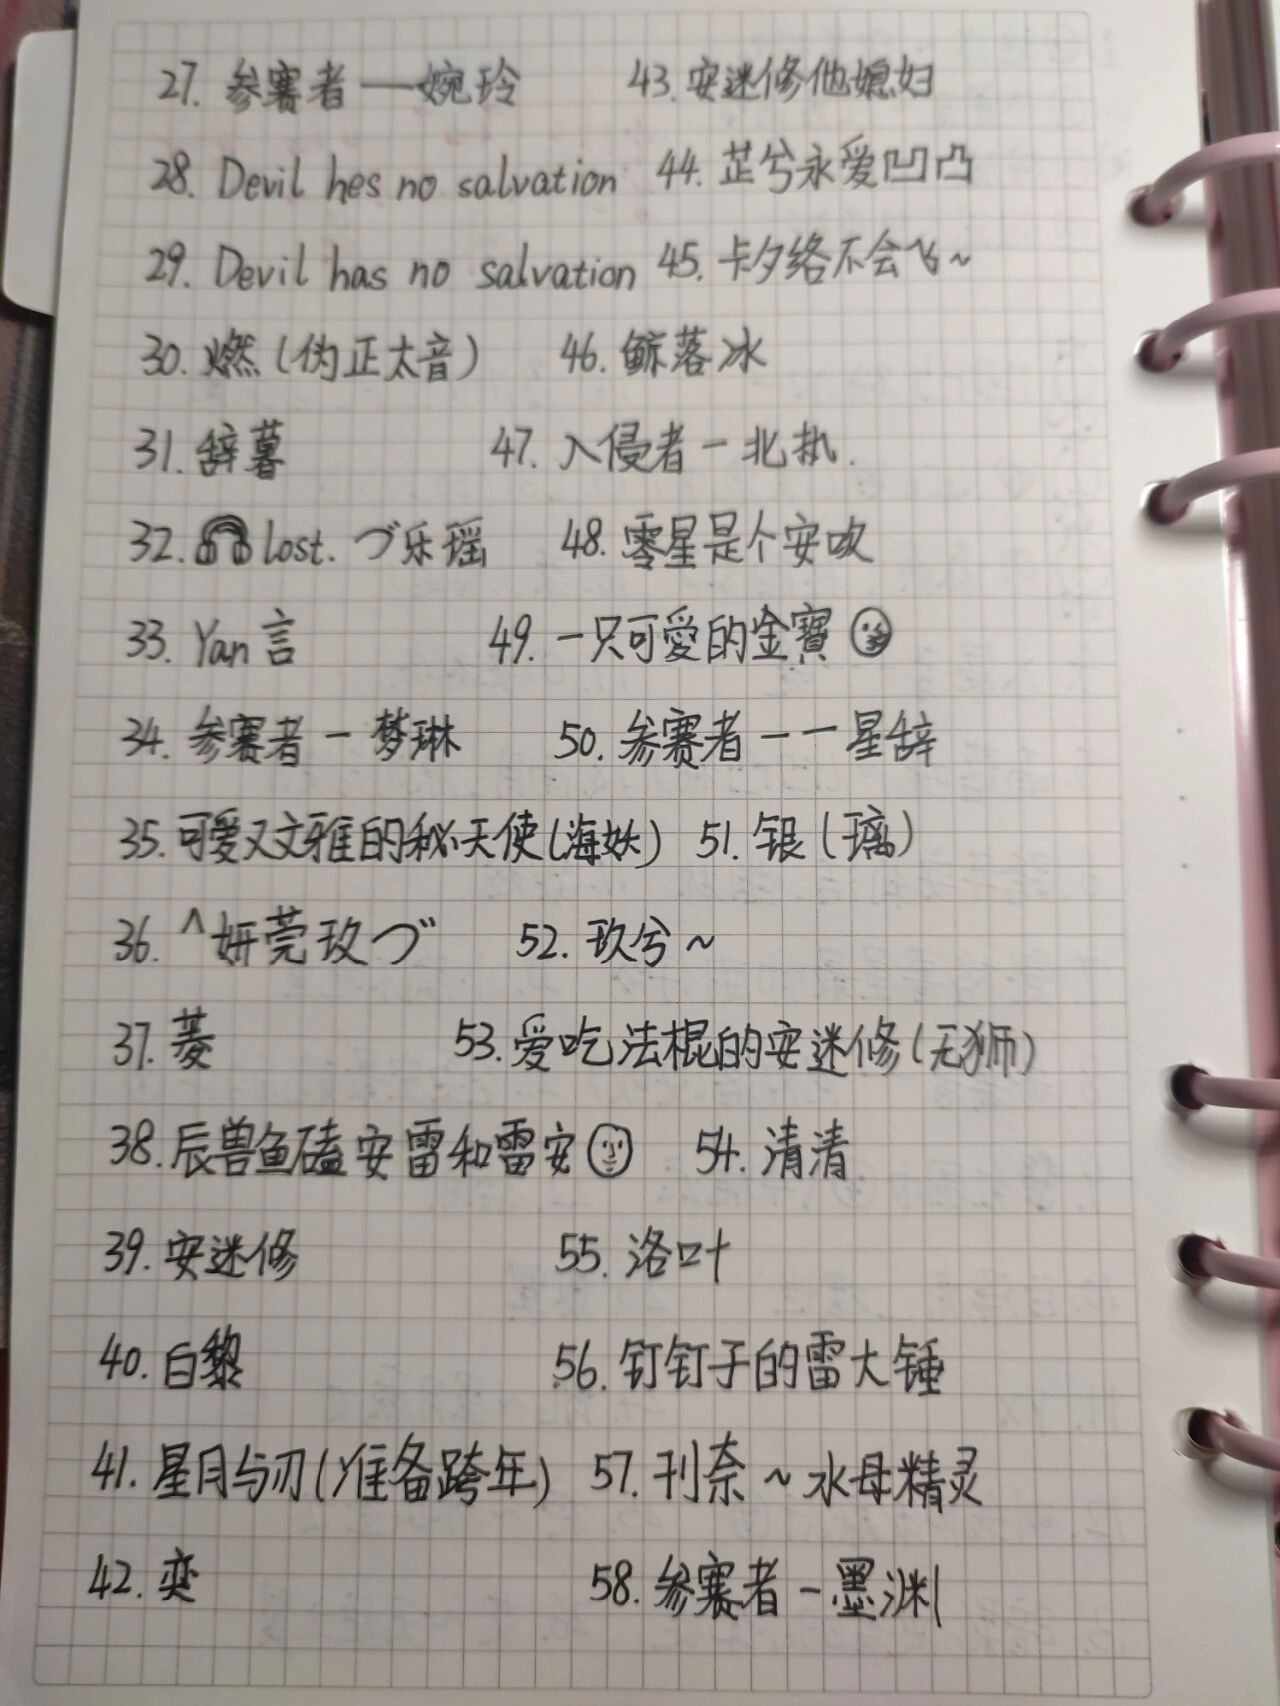 27. 参赛者——婉玲
28. Devil hes no salvation
29. Devil has no salvation
30. 燃（伪正太音）
31. 辞暮
32. lost. づ乐瑶
33. Yan言
34. 参赛者－梦琳
35. 可爱又文雅的秘天使(海妖)
36. ^妍莞玫づ
37. 菱
38. 辰兽鱼磕安雷和雷安
39. 安迷修
40. 白黎
41. 星月与刃(准备跨年)
42. 奕
43. 安迷修他媳妇
44. 芷兮永爱凹凸
45. 卡夕络不会飞~
46. 鲸落冰
47. 入侵者－北执.
48. 零星是个安吹
49. 一只可愛的金寶
50. 参赛者－－星辞
51. 银（璃）
52. 玖兮~
53. 爱吃法棍的安迷修(无狮)
54. 清清
55. 洛叶
56. 钉钉子的雷大锤
57. 刊奈~水母精灵
58. 参赛者－墨渊